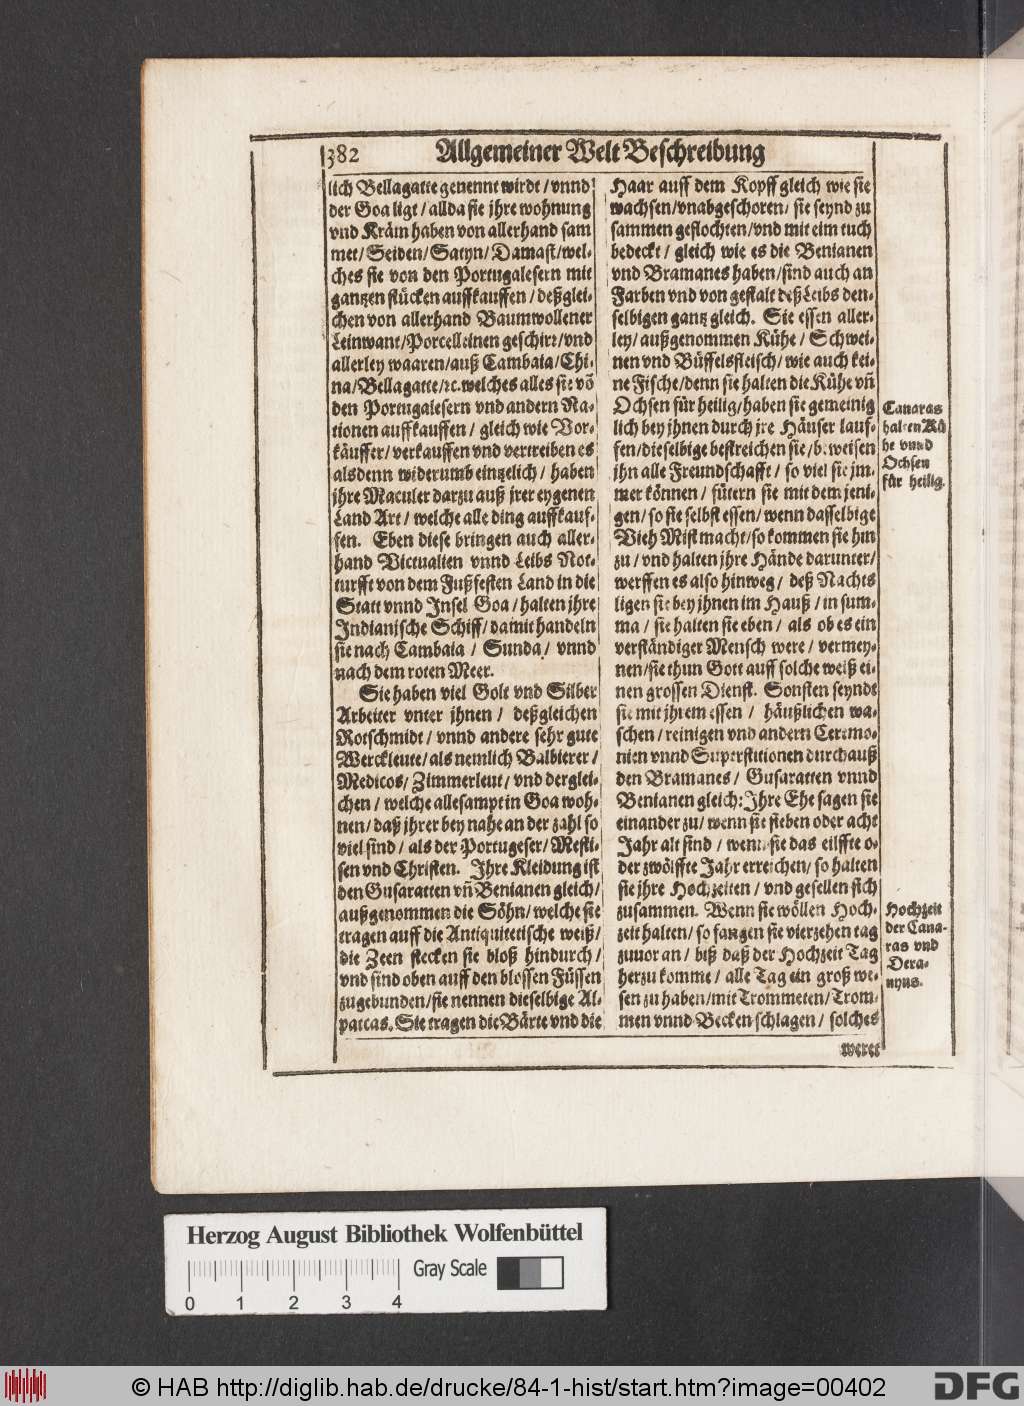 382
Allgemeiner Welt Beschreibung
lich Bellagatte genennt wirdt / vnnd
der Goa ligt / allda sie jhre wohnung
vnd Kräm haben von allerhand sam
met / Seiden / Satyn / Damast / wel-
ches sie von den Portugalesern mit
gantzen stücken auffkauffen / deßglei-
chen von allerhand Baumwollener
Leinwant / Porcelleinen geschirr / vnd
allerley waaren / auß Cambaia / Chi-
na / Bellagatte / ꝛc. welches alles sie võ
den Portugalesern vnd andern Na-
tionen auffkauffen / gleich wie Vor-
käuffer / verkauffen vnd vertreiben es
alsdenn widerumb eintzelich / haben
jhre Maculer darzu auß jrer eygenen
Land Art / welche alle ding auffkauf-
fen. Eben diese bringen auch aller-
hand Victualien vnnd Leibs Not-
turfft von dem Fußfesten Land in die
Statt vnnd Insel Goa / halten jhre
Indianische Schiff / damit handeln
sie nach Cambaia / Sunda / vnnd
nach dem roten Meer.
Sie haben viel Golt vnd Silber
Arbeiter vnter jhnen / deßgleichen
Rotschmidt / vnnd andere sehr gute
Werckleute / als nemlich Balbierer /
Medicos / Zimmerleut / vnd derglei-
chen / welche allesampt in Goa woh-
nen / daß jhrer bey nahe an der zahl so
viel sind / als der Portugeser / Mesti-
sen vnd Christen. Ihre Kleidung ist
den Gusaratten vñ Benianen gleich /
außgenommen die Söhn / welche sie
tragen auff die Antiquitetische weiß /
die Zeen stecken sie bloß hindurch /
vnd sind oben auff den blossen Füssen
zugebunden / sie nennen dieselbige Al-
parcas. Sie tragen die Bärte vnd die
Haar auff dem Kopff gleich wie sie
wachsen / vnabgeschoren / sie seynd zu
sammen geflochten / vnd mit eim tuch
bedeckt / gleich wie es die Benianen
vnd Bramanes haben / sind auch an
Farben vnd von gestalt deß Leibs den-
selbigen gantz gleich. Sie essen aller-
ley / außgenommen Kühe / Schwei-
nen vnd Büffelsfleisch / wie auch kei-
ne Fische / denn sie halten die Kühe vñ
Ochsen für heilig / haben sie gemeinig
lich bey jhnen durch jre Häuser lauf-
fen / dieselbige bestreichen sie / beweisen
jhn alle Freundschafft / so viel sie jm-
mer können / fütern sie mit dem jeni-
gen / so sie selbst essen / wenn dasselbige
Vieh Mist macht / so kommen sie hin
zu / vnd halten jhre Hände darunter /
werffen es also hinweg / deß Nachts
ligen sie bey jhnen im Hauß / in sum-
ma / sie halten sie eben / als ob es ein
verständiger Mensch were / vermey-
nen / sie thun Gott auff solche weiß ei-
nen grossen Dienst. Sonsten seyndt
sie mit jhrem essen / häußlichen wa-
schen / reinigen vnd andern Ceremo-
nien vnnd Superstitionen durchauß
den Bramanes / Gusaratten vnnd
Benianen gleich: Ihre Ehe sagen sie
einander zu / wenn sie sieben oder acht
Jahr alt sind / wenn sie das eilffte o-
der zwölffte Jahr erreichen / so halten
sie jhre Hochzeiten / vnd gesellen sich
zusammen. Wenn sie wöllen Hoch-
zeit halten / so fangen sie vierzehen tag
zuuor an / biß daß der Hochzeit Tag
herzu komme / alle Tag ein groß we-
sen zu haben / mit Trommeten / Trom-
men vnnd Becken schlagen / solches
weret
Canaras
halten Kü
he vnnd
Ochsen
für heilig.
Hochzeit
der Cana-
ras vnd
Deca-
nyns.
Herzog August Bibliothek Wolfenbüttel
Gray Scale
0 1 2 3 4
© HAB http://diglib.hab.de/drucke/84-1-hist/start.htm?image=00402
DFG